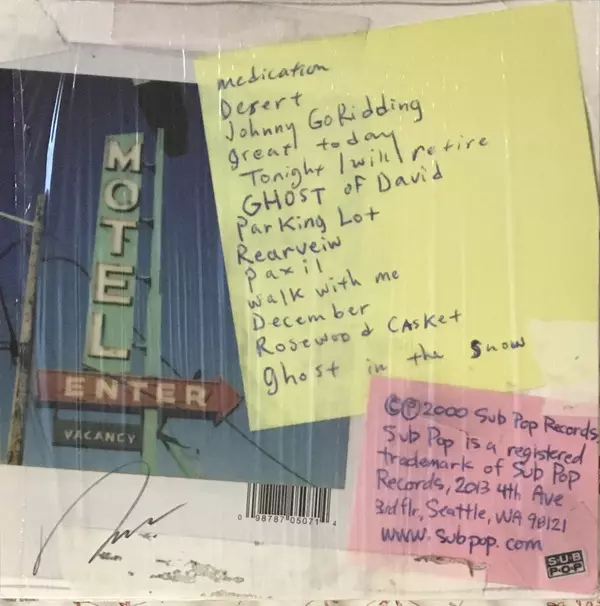 medication
Desert
Johnny Go Ridding
great today
Tonight I will retire
GHOST of David
Parking Lot
Rearveiw
Paxil
walk with me
December
Rosewood Casket
ghost in the Snow
MOTEL
ENTER
VACANCY
0 98787 05071 4
©℗ 2000 Sub Pop Records,
Sub Pop is a registered
trademark of Sub Pop
Records, 2013 4th Ave
3rd flr, Seattle, WA 98121
www.subpop.com
SUB
POP